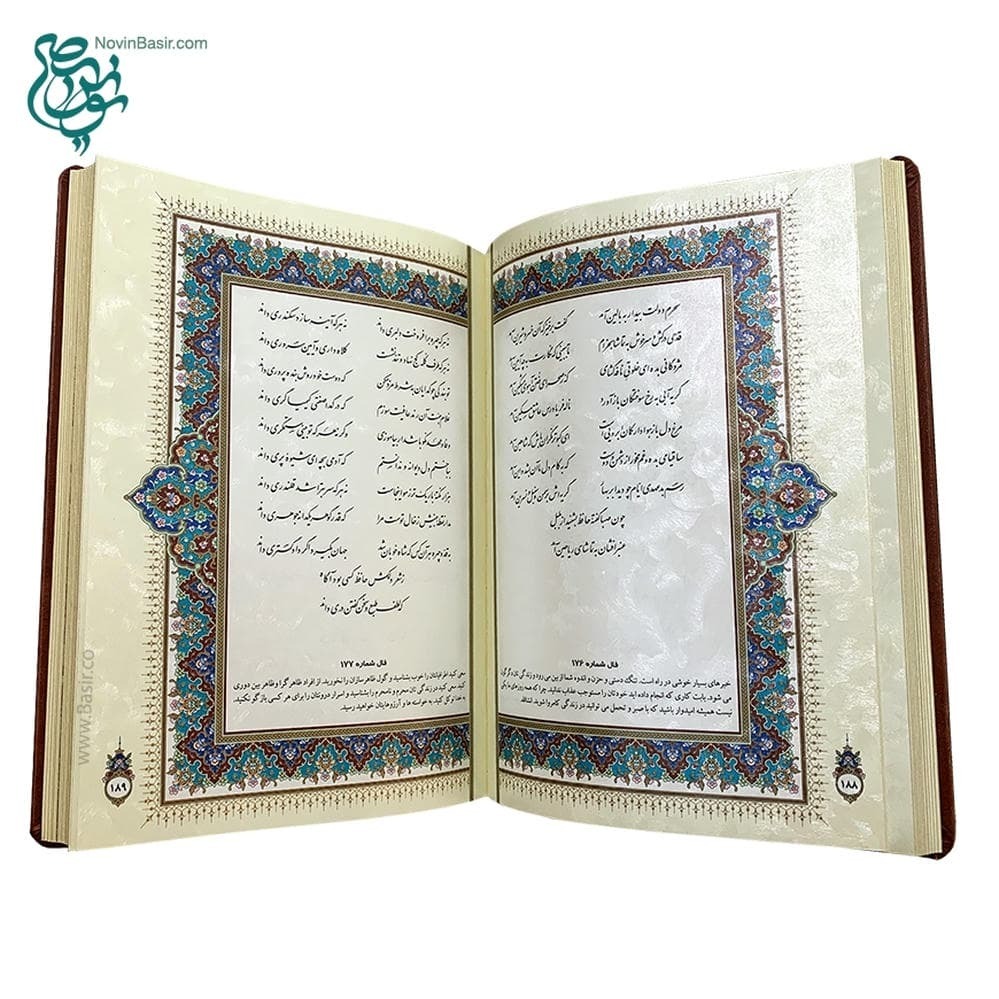 NovinBasir.com
سحرم دولت بیدار به بالین آمد گفت برخیز که آن خسرو شیرین آمد
قدحی درکش و سرخوش به تماشا بخرام تا ببینی که نگارت به چه آیین آمد
مژدگانی بده ای خلوتی نافه گشای که ز صحرای ختن آهوی مشکین آمد
گریه آبی به رخ سوختگان باز آورد ناله فریادرس عاشق مسکین آمد
مرغ دل باز هوادار کمان ابرویی است ای کبوتر نگران باش که شاهین آمد
ساقیا می بده و غم مخور از دشمن و دوست که به کام دل ما آن بشد و این آمد
رسم بدعهدی ایام چو دید ابر بهار گریه اش بر سمن و سنبل و نسرین آمد
چون صبا گفته حافظ بشنید از بلبل
عنبر افشان به تماشای ریاحین آمد
فال شماره ۱۷۶
خبرهای بسیار خوشی در راه است. تنگ دستی و حزن و اندوه شما از بین می رود و زندگی تان دگرگون
می شود. بابت کاری که انجام داده اید خودتان را مستوجب عذاب بدانید. چرا که همه روزهای ما یکی
نیست همیشه امیدوار باشید که با صبر و تحمل می توانید در زندگی کامروا شوید. انشاالله
۱۸۸
نه هر که چهره برافروخت دلبری داند نه هر که آینه سازد سکندری داند
نه هر که طرف کله کج نهاد و تند نشست کلاه داری و آیین سروری داند
تو بندگی چو گدایان به شرط مزد مکن که دوست خود روش بنده پروری داند
غلام همت آن رند عافیت سوزم که در گدا صفتی کیمیاگری داند
وفا و عهد نکو باشد ار بیاموزی وگرنه هر که تو بینی ستمگری داند
بباختم دل دیوانه و ندانستم که آدمی بچه ای شیوه پری داند
هزار نکته باریک تر ز مو اینجاست نه هر که سر بتراشد قلندری داند
مدار نقطه بینش ز خال توست مرا که قدر گوهر یکدانه جوهری داند
به قد و چهره هر آن کس که شاه خوبان شد جهان بگیرد اگر دادگستری داند
ز شعر دلکش حافظ کسی بود آگاه
که لطف طبع و سخن گفتن دری داند
فال شماره ۱۷۷
سعی کنید اطرافیانتان را خوب بشناسید و گول ظاهرسازان را نخورید. از افراد ظاهر گرا و ظاهر بین دوری
کنید. سعی کنید در زندگی تان محرم و نامحرم را بشناسید و اسرار درونتان را برای هر کسی بازگو نکنید.
به خدا توکل کنید به خواسته ها و آرزوهایتان خواهید رسید.
۱۸۹
www.Basir.co